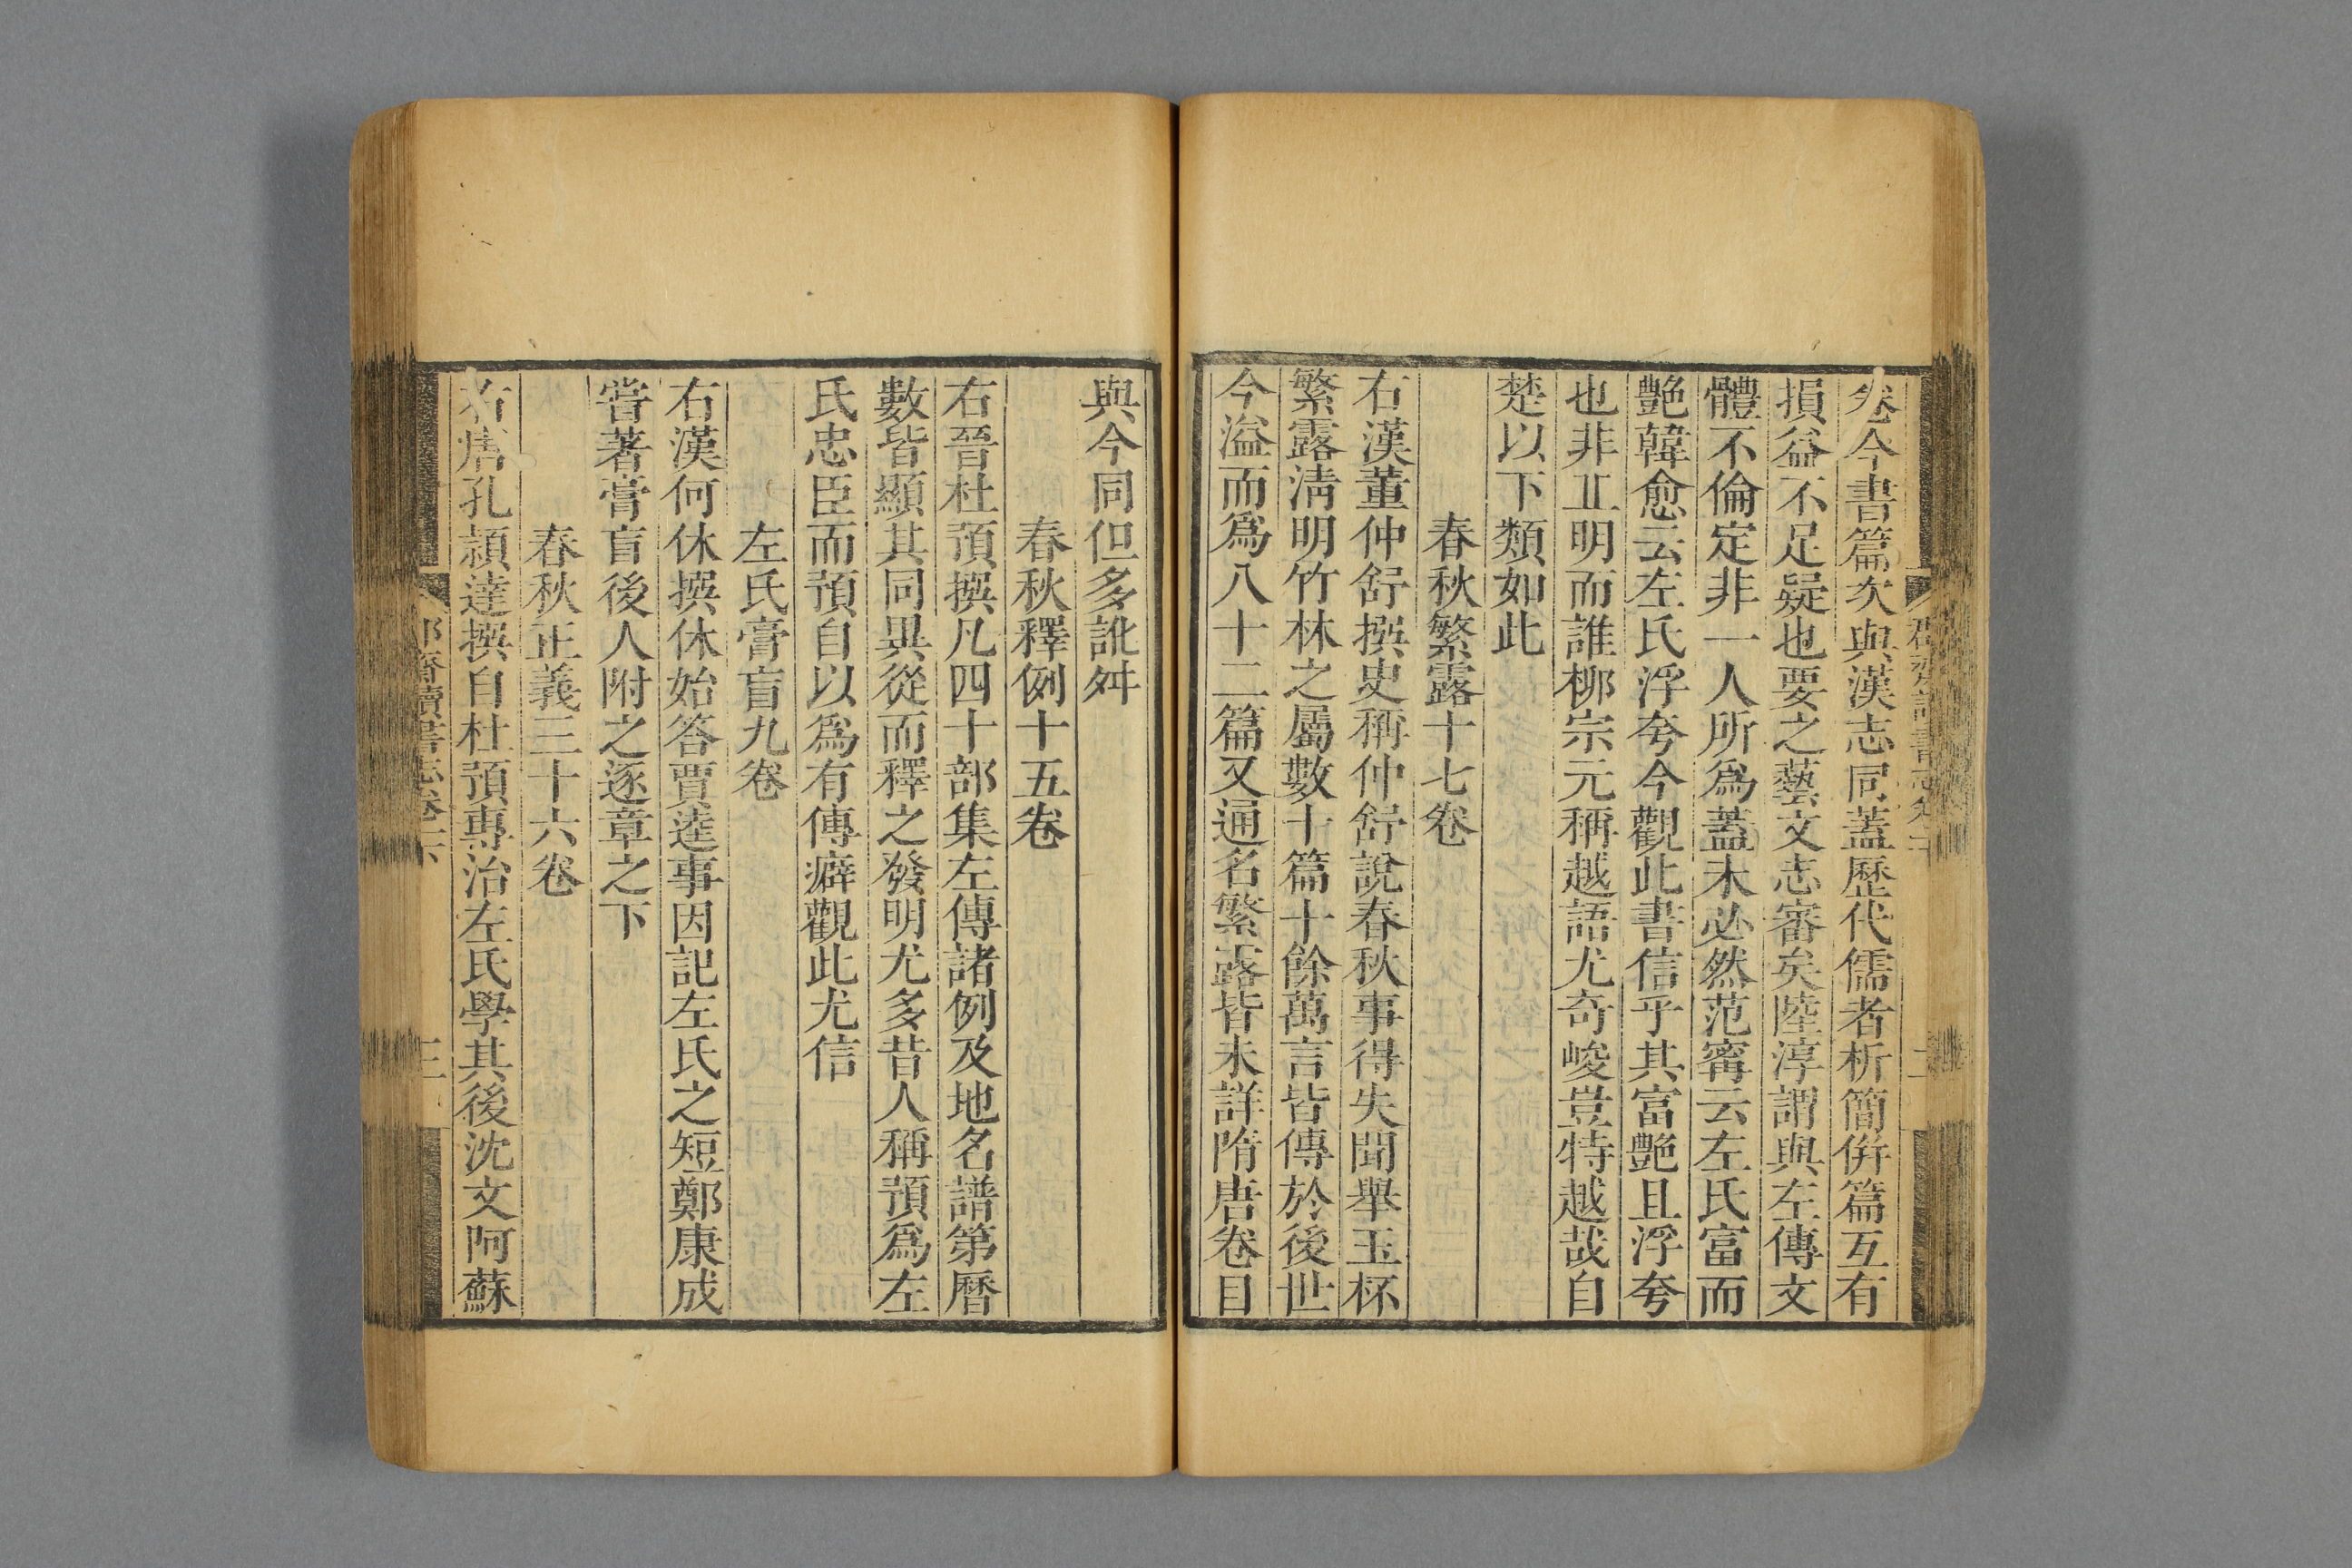 卷今書篇次與漢志同蓋歷代儒者析簡併篇互有
損益不足疑也要之藝文志審矣陸淳謂與左傳文
體不倫定非一人所爲蓋未必然范甯云左氏富而
艶韓愈云左氏浮夸今觀此書信乎其富艶且浮夸
也非丘明而誰柳宗元稱越語尤奇峻豈特越哉自
楚以下類如此
春秋繁露十七卷
右漢董仲舒撰史稱仲舒說春秋事得失聞舉玉杯
繁露淸明竹林之屬數十篇十餘萬言皆傳於後世
今溢而爲八十二篇又通名繁露皆未詳隋唐卷目
與今同但多訛舛
春秋釋例十五卷
右晉杜預撰凡四十部集左傳諸例及地名譜第曆
數皆顯其同異從而釋之發明尤多昔人稱預爲左
氏忠臣而預自以爲有傳癖觀此尤信
左氏膏盲九卷
右漢何休撰休始答賈逵事因記左氏之短鄭康成
嘗著膏盲後人附之逐章之下
春秋正義三十六卷
右唐孔穎達撰自杜預專治左氏學其後沈文阿蘇
郡齋讀書志卷
三